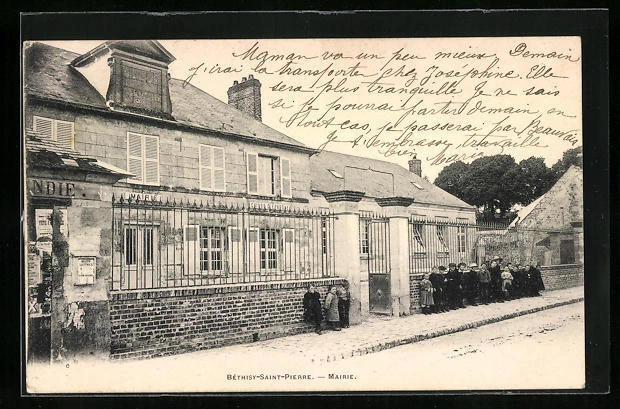 Maman va un peu mieux. Demain
j'irai la transporter chez Joséphine. Elle
sera plus tranquille. Je ne sais
si je pourrai partir demain en
tout cas, je passerai par Beauvais
Je t'embrasse, travaille
Marie
MAIRIE
NDIE
BÉTHISY-SAINT-PIERRE. — MAIRIE.